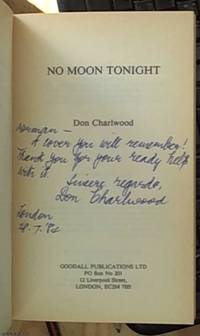 NO MOON TONIGHT
Don Charlwood
Norman –
A cover you will remember!
Thank you for your ready help
with it.
Sincere regards,
Don Charlwood
London
GOODALL PUBLICATIONS LTD
PO Box No 201
12 Liverpool Street,
LONDON, EC2M 7BS